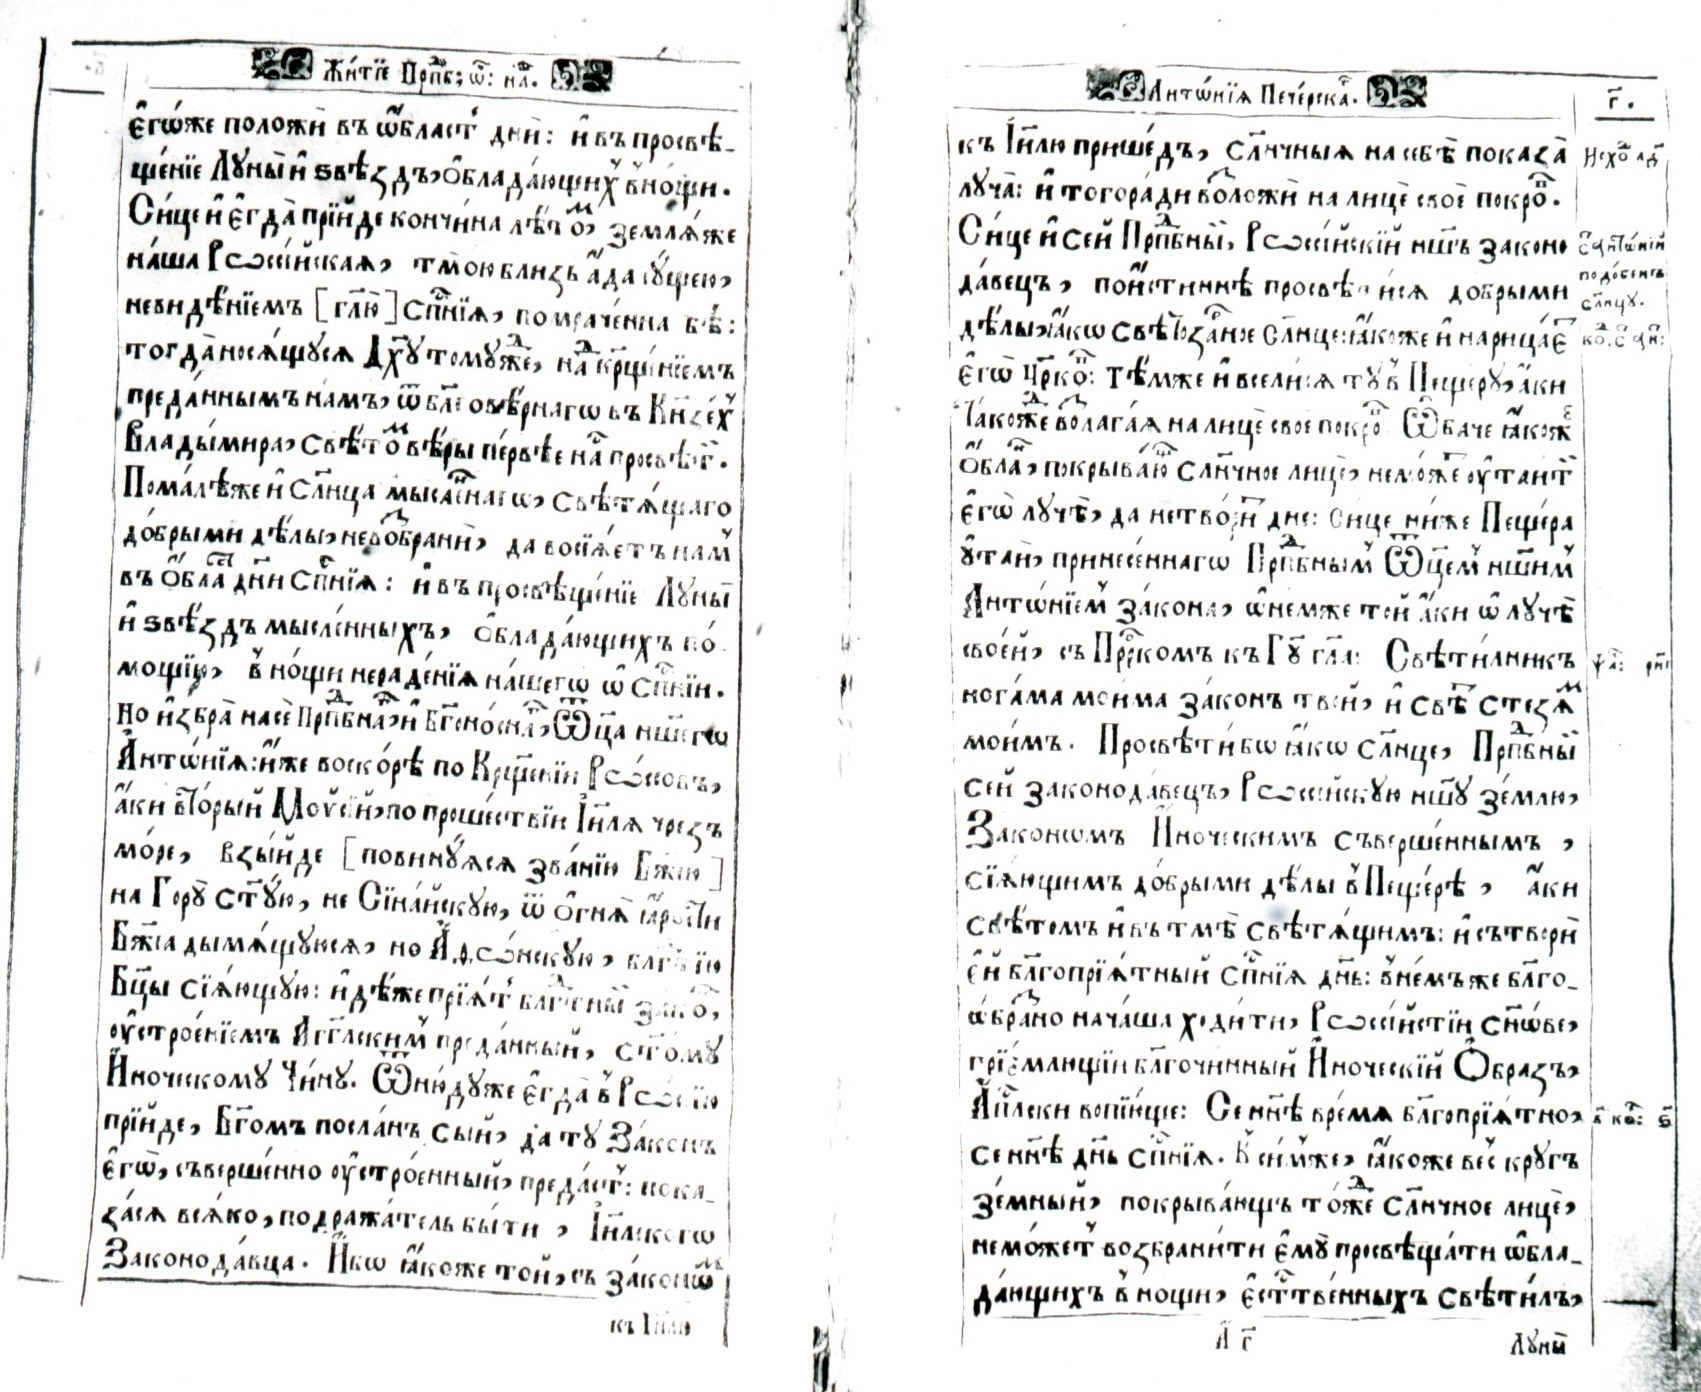 Жи́тїе Прпⷣб: ѿ: на́ш.
є҆гѡ́же положѝ въ ѡ҆́бласть дни̑: и҆ въ просвѣ-
ще́нїе Лꙋны̀ и҆ ѕвѣ́здъ, ѻ҆блада́ющих в̾ но́щи.
Си́це и҆ є҆гда̀ прїи́де кончи́на лѣ́тѡм, землѧ́же
на́ша Рѡссі́йская, тмо́ю близь а҆́да сꙋ́щею,
невидѣ́нїемъ [гл҃ю] сп҃нїѧ, помраче́нна бѣ̀:
тогда̀ носѧ́щꙋсѧ Дх҃ꙋ томꙋ́жде, над кр҃ще́нїемъ
преда́ннымъ на́мъ, ѿ бл҃говѣ́рнагѡ въ Кн҃зех
Влады́мира, свѣ́том вѣ́ры пе́рвѣе на́с просвѣти́.
Пома́лѣже и҆ сл҃нца мы́сленнагѡ, свѣтѧ́щаго
до́брыми дѣ́лы, невозбранѝ, да восїѧ́етъ на́м
въ ѡ҆́бласть дн҃и сп҃нїѧ: и҆ въ просвѣще́нїе Лꙋны̀
и҆ ѕвѣ́здъ мы́сленныхъ, ѻ҆блада́ющихъ по́-
мощїю, в̾ но́щи нераде́нїѧ на́шегѡ ѡ҆ сп҃нїи.
Но и҆збра̀ на сѐ Прпⷣбнаго, и҆ Бг҃оно́снаго, Ѿц҃а нш҃егѡ
А҆нтѡ́нїѧ: и҆́же воско́рѣ по Кр҃щенїи Рѡ́ссовъ,
а҆́ки вторы́й Мѡѷсе́й, по проше́ствїи І҆и҃лѧ чрезъ
мо́ре, взы́йде [повинꙋ́ясѧ зва́нїю Бж҃їю]
на Горꙋ̀ ст҃ꙋ́ю, не Сїна́йскꙋю, ѿ ѻ҆гнѧ̀ ꙗ҆́рости
Бж҃їа дымѧ́щꙋюсѧ, но А҆ѳѡ́нскꙋю, блг҃тїю
Бц҃ы сїѧ́ющꙋю: и҆дѣ́же прїѧ́т блг҃тный зако́н,
ᲂу҆строе́нїемъ А҆гг҃лским преда́нный, ст҃о́мꙋ
И҆́ноческомꙋ Чи́нꙋ. Ѿню́дꙋже є҆гда̀ в̾ Рѡссі́ю
прїи́де, Бг҃омъ посла́нъ сы́й, да тꙋ̀ Зако́нъ
є҆гѡ̀, съверше́нно ᲂу҆стро́енный, преда́ст: пока-
за́сѧ всѧ́ко, подража́тель бы́ти, І҆и҃лскогѡ
Законода́вца. И҆́бѡ ꙗ҆́коже то́й, съ зако́нѡм
къ І҆и҃лю
А҆нтѡ́нїѧ Пече́рска.
г҃.
къ І҆и҃лю прише́дъ, сл҃нчныѧ на себѣ̀ показа̀
лꙋча̀: и҆ тогора́ди возложѝ на лицѐ своѐ покро́в.
Си́це и҆ сей Прпⷣбный, Рѡссі́йскїй нш҃ъ законо
да́вецъ, пои́стиннѣ просвѣти́сѧ до́брыми
дѣ́лы, ꙗ҆́кѡ свѣтоза́рное сл҃нце: ꙗ҆́коже и҆ нарица́ет
є҆гѡ̀ Цр҃ков: тѣ́мже и҆ всели́сѧ тꙋ̀ в̾ Пеще́рꙋ, а҆́ки
ꙗ҆́кожде возлага́ѧ на лицѐ своѐ покро́в. Ѻ҆ба́че ꙗ҆́коже
ѻ҆́блак, покрыва́ющ сл҃нчное лицѐ, немо́жет ᲂу҆таи́ти
є҆гѡ̀ лꙋчѐ, да нетвори́т дне: си́це ни́же Пеще́ра
ᲂу҆таѝ, принесе́ннагѡ Прпⷣбным Ѿц҃ем нш҃им
А҆нтѡ́нїем зако́на, ѡ҆ не́мже то́й а҆́ки ѡ҆ лꙋчѐ
свое́й, съ Прⷪ҇ркомъ къ Гд҃ꙋ гл҃а: Свѣти́лникъ
нога́ма мои́ма зако́нъ тво́й, и҆ свѣт стезѧ́м
мои́мъ. Просвѣти́ бѡ ꙗ҆́кѡ сл҃нце, Прпⷣбный
сей законода́вецъ, Рѡссі́йскꙋю нш҃ꙋ зе́млю,
Зако́нѡмъ И҆́ноческимъ съверше́ннымъ,
сїѧ́ющимъ до́брыми дѣ́лы в̾ Пеще́рѣ, а҆́ки
свѣ́томъ и҆ въ тмѣ̀ свѣтѧ́щимъ: и҆ сътворѝ
є҆́й бл҃гопрїѧ́тный сп҃нїѧ дн҃ь: в̾не́мъже бл҃го-
ѡ҆́бразно нача́ша ходи́ти, Рѡссі́йстїи сн҃ѡве,
прїе́млющїи бл҃гочи́нный И҆́ноческїй Ѻ҆́бразъ,
А҆п҃лски вопїю́ще: Се нн҃ѣ вре́мѧ бл҃гопрїѧ́тно,
се нн҃ѣ дн҃ь сп҃нїѧ. К̾ си́мже, ꙗ҆́коже ве́с крꙋ́гъ
зе́мный, покрыва́ющъ то́жде сл҃нчное лицѐ,
немо́жет возбрани́ти є҆мꙋ̀ просвѣща́ти ѡ҆бла-
да́ющихъ в̾ нощи, є҆сте́ственныхъ свѣти́лъ,
А҆ г҃
Лꙋны̀
Исхо́д лд҃
с҃ А҆нтѡ́нїй
подо́бенъ
сл҃нцꙋ.
ѱа́л: рн҃і
в҃ ко́р: ѕ҃